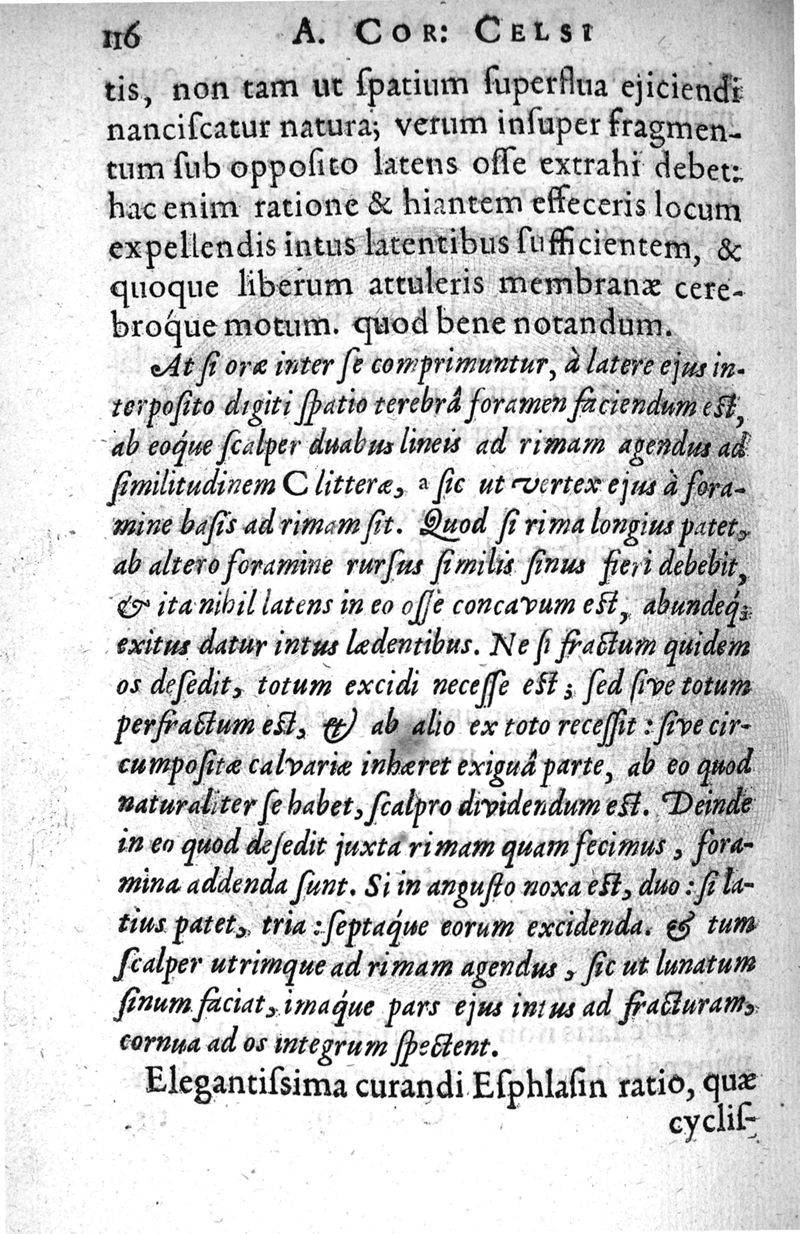 116 A. COR: CELSI
tis, non tam ut ſpatium ſuperflua ejiciendi
nanciſcatur natura; verum inſuper fragmen-
tum ſub oppoſito latens oſſe extrahi debet:
hac enim ratione & hiantem effeceris locum
expellendis intus latentibus ſufficientem, &
quoque liberum attuleris membranæ cere-
broq́ue motum. quod bene notandum.
At ſi oræ inter ſe comprimuntur, à latere ejus in-
terpoſito digiti ſpatio terebrâ foramen faciendum eſt,
ab eoq́ue ſcalper duabus lineis ad rimam agendus ad
ſimilitudinem C litteræ, a ſic ut vertex ejus à fora-
mine baſis ad rimam ſit. Quod ſi rima longius patet,
ab altero foramine rurſus ſimilis ſinus fieri debebit,
& ita nihil latens in eo oſſe concavum eſt, abundeq́;
exitus datur intus lædentibus. Ne ſi fractum quidem
os deſedit, totum excidi neceſſe eſt; ſed ſive totum
perfractum eſt, & ab alio ex toto receſſit: ſive cir-
cumpoſitæ calvariæ inhæret exiguâ parte, ab eo quod
naturaliter ſe habet, ſcalpro dividendum eſt. Deinde
in eo quod deſedit juxta rimam quam fecimus, fora-
mina addenda ſunt. Si in anguſto noxa eſt, duo: ſi la-
tius patet, tria: ſeptaq́ue eorum excidenda. & tum
ſcalper utrimque ad rimam agendus, ſic ut lunatum
ſinum faciat, imaq́ue pars ejus intus ad fracturam,
cornua ad os integrum ſpectent.
Elegantiſsima curandi Eſphlaſin ratio, quæ
cycliſ-